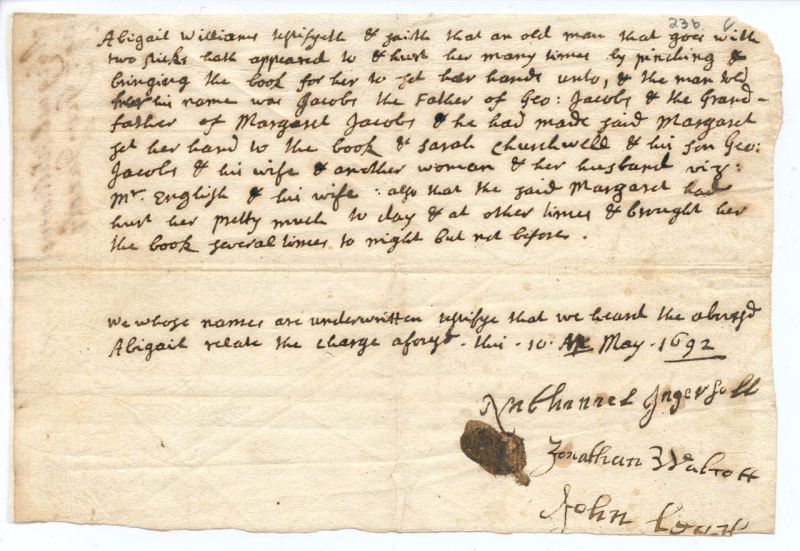 236
Abigail Williams testifyeth & saith that an old man that goes with
two sticks hath appeared to & hurt her many times by pinching &
bringing the book for her to set her hands unto, & the man told
her his name was Jacobs the Father of Geo: Jacobs & the Grand-
father of Margaret Jacobs & he had made said Margaret
set her hand to the book & Sarah Churchwell & his son Geo:
Jacobs & his wife & another woman & her husband viz:
Mr. English & his wife : also that the said Margaret had
hurt her pretty much to day & at other times & brought her
the book several times to night but not before .
We whose names are underwritten testifye that we heard the abovesd
Abigail relate the charge aforesd. this . 10. May . 1692
Nathaniel Ingersoll
Jonathan Walcott
John